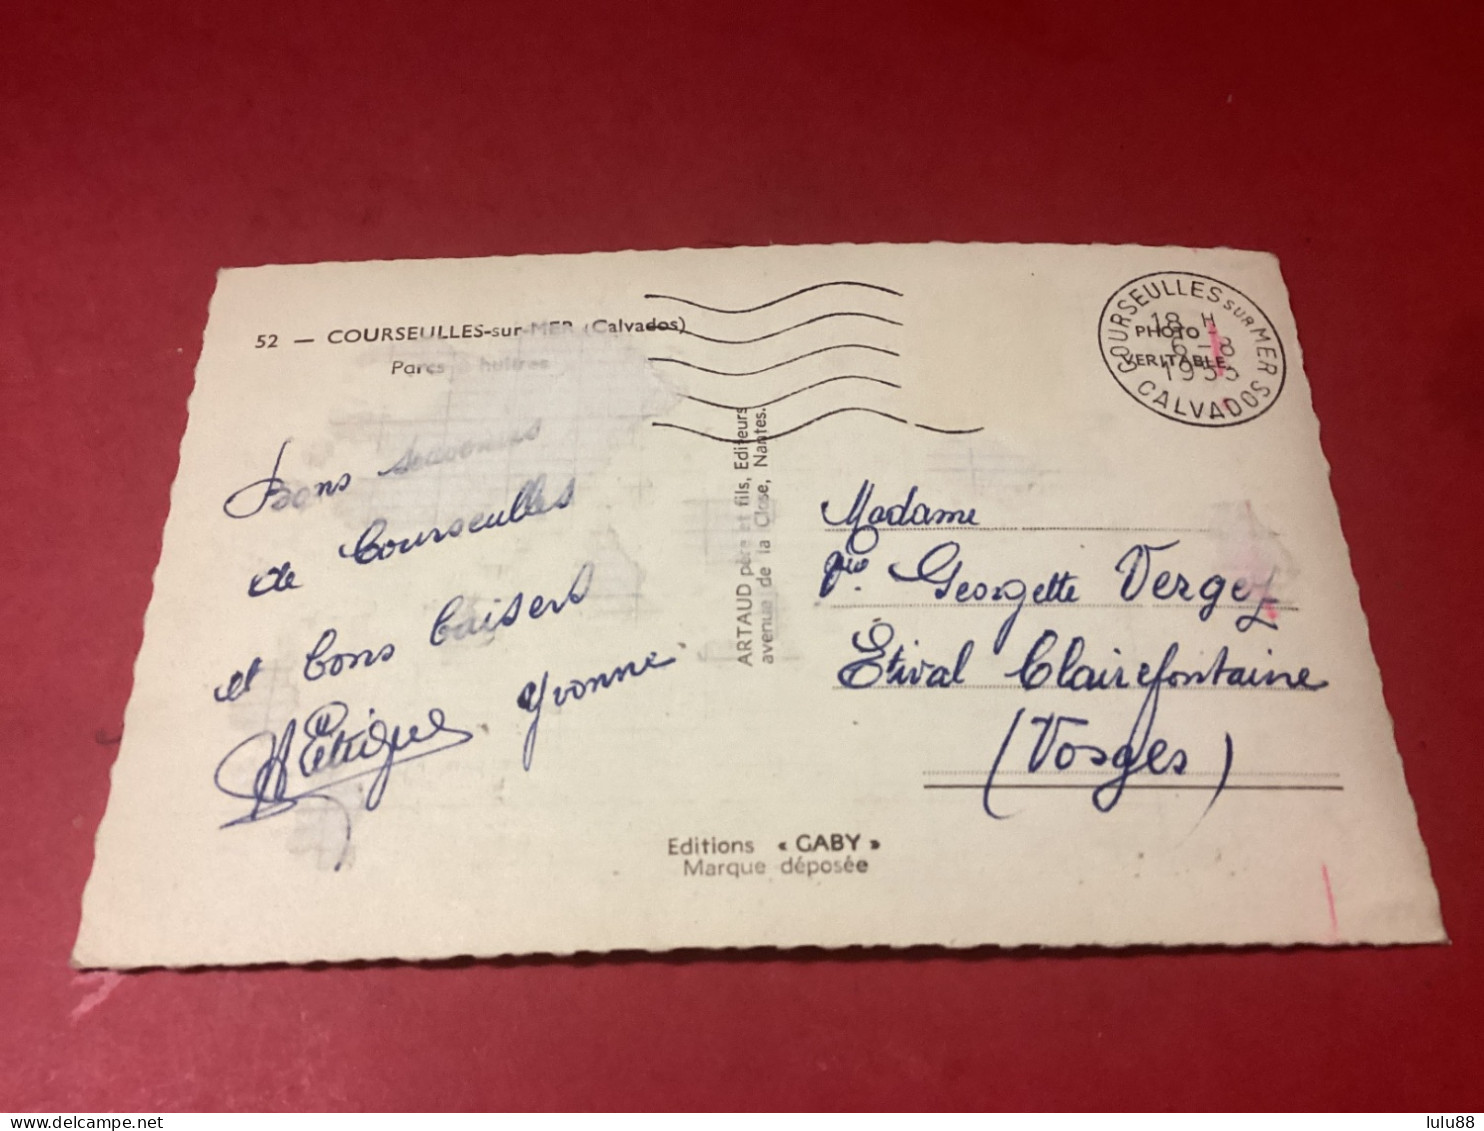 52 — COURSEULLES-sur-MER (Calvados)
Parcs à huîtres
Bons souvenirs
de Courseulles
et bons baisers
Yvonne
ARTAUD père et fils, Editeurs
avenue de la Close, Nantes.
COURSEULLES SUR MER
18 H
6 - 8
CALVADOS
PHOTO
VERITABLE
Madame
Vve Georgette Vergez
Étival Clairefontaine
(Vosges)
Editions « GABY »
Marque déposée
lulu88